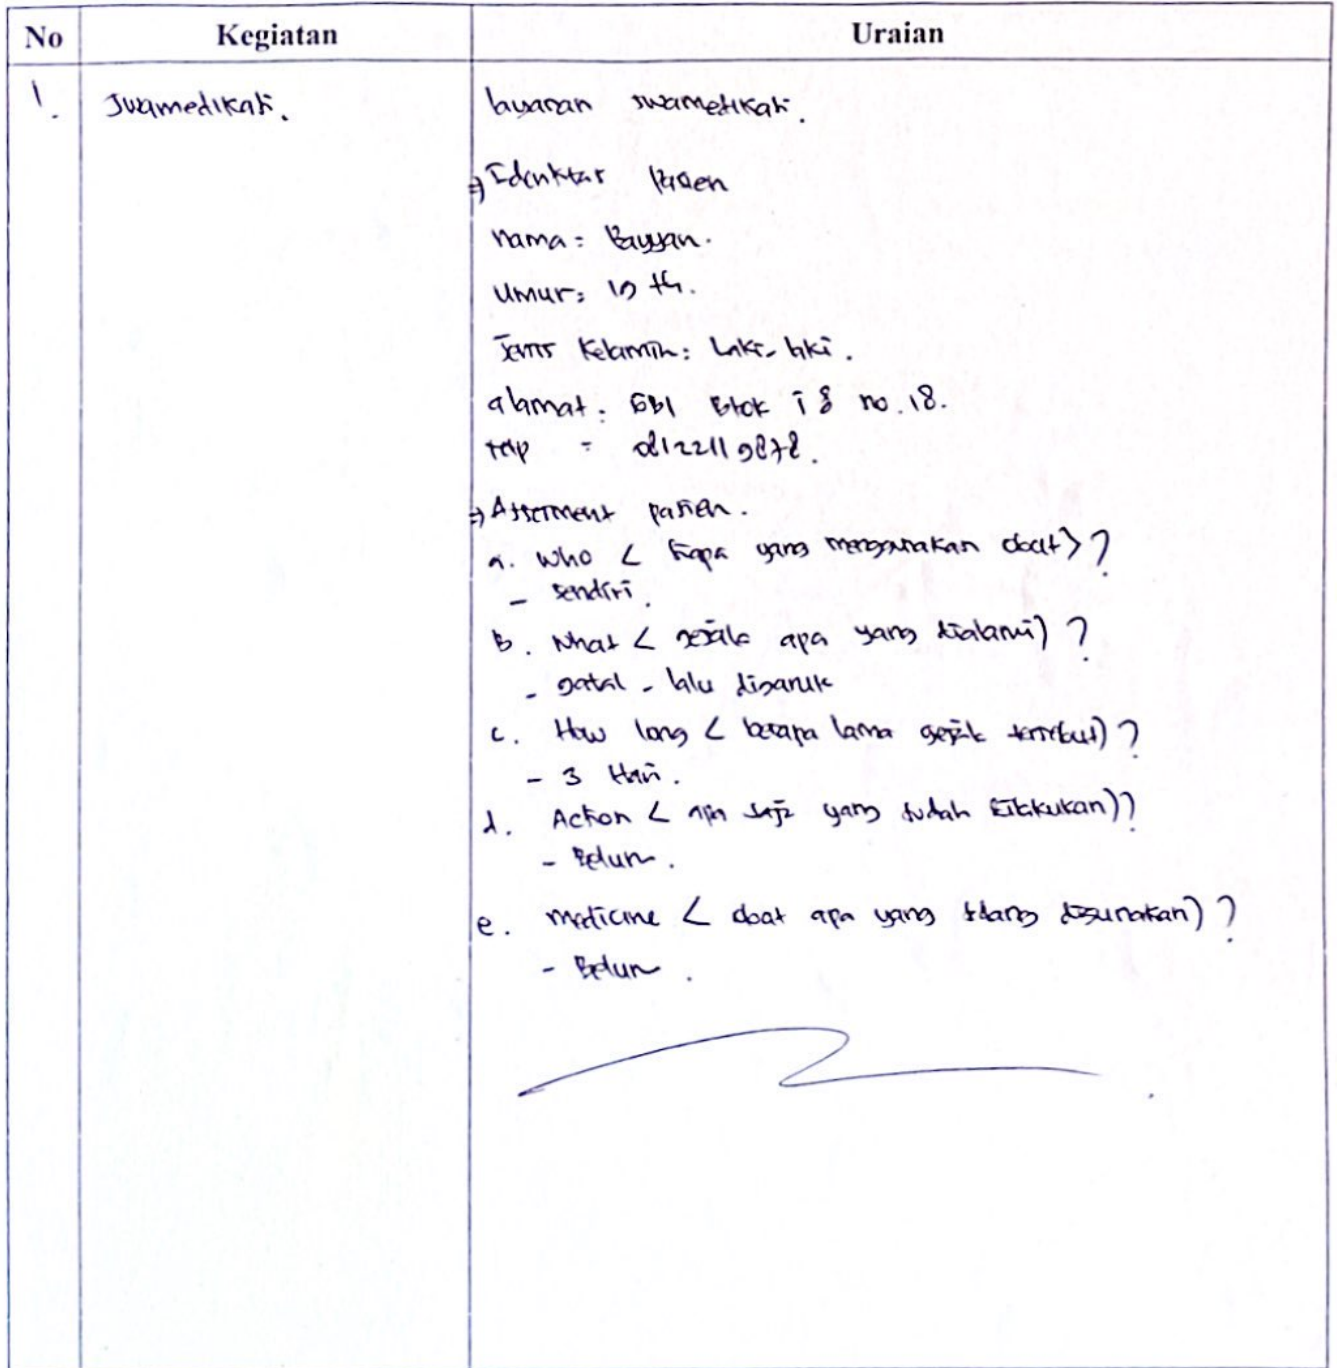 No Kegiatan Uraian
1. Swamedikasi. layanan swamedikasi.
⇒ Identitas Pasien
nama = Rayyan.
Umur: 19 th.
Jenis Kelamin: Laki-laki.
alamat: GBI Blok i 8 no. 18.
telp =
⇒ Assesment pasien.
a. Who < siapa yang menggunakan obat) ?
- sendiri.
B. What < gejala apa yang dialami) ?
- gatal - lalu digaruk
c. How long < berapa lama gejala tersebut) ?
- 3 Hari.
d. Action < apa saja yang sudah dilakukan) ?
- Belum.
e. medicine < obat apa yang sedang digunakan) ?
- Belum.